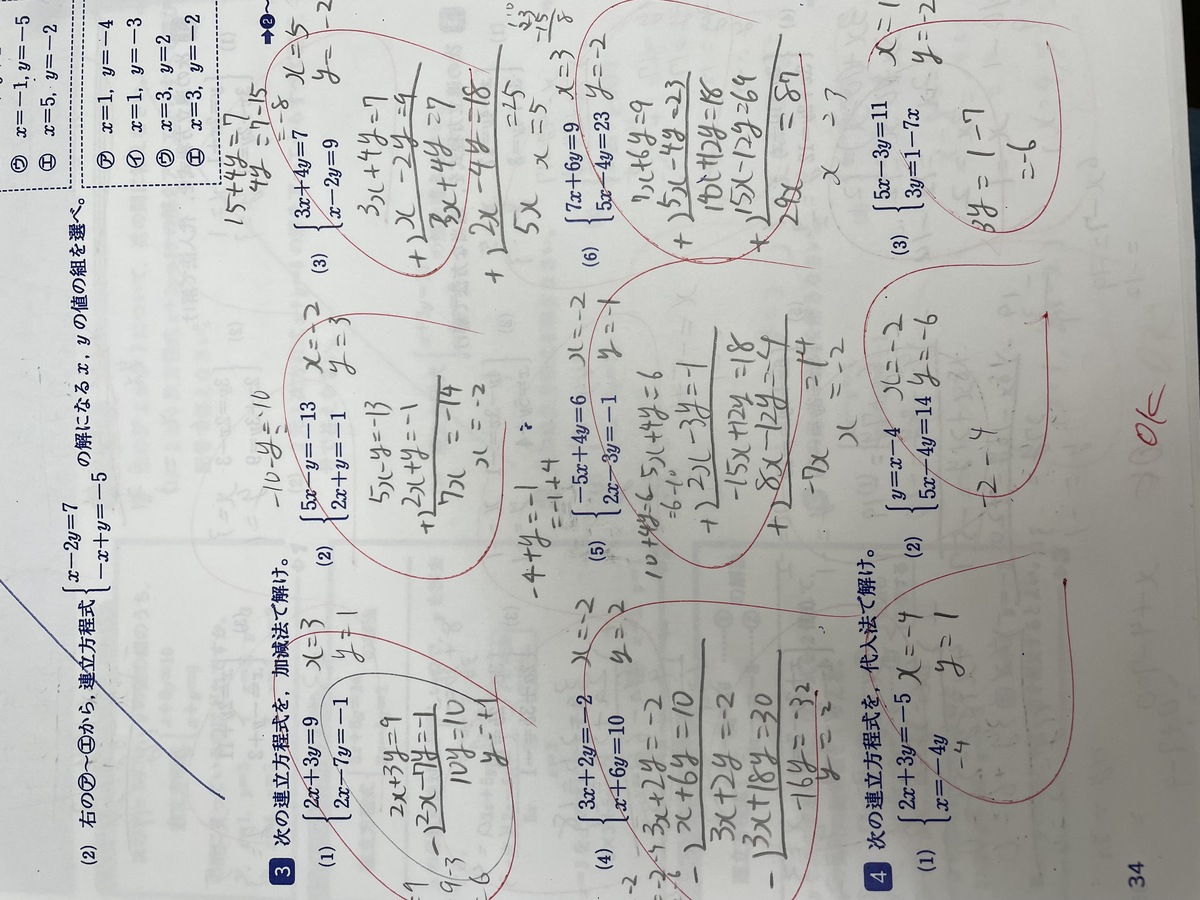 ㋒ x=-1, y=-5
㋓ x=5, y=-2
(2) 右の㋐～㋓から, 連立方程式 { x-2y=7
-x+y=-5 の解になる x, y の値の組を選べ。
㋐ x=1, y=-4
㋑ x=1, y=-3
㋒ x=3, y=2
㋓ x=3, y=-2
3 次の連立方程式を, 加減法で解け。
(1) { 2x+3y=9
2x-7y=-1
x=3
y=1
2x+3y=9
-)2x-7y=-1
10y=10
y=+1
9-3
6
(2) { 5x-y=-13
2x+y=-1
x=-2
y=3
-10-y=-10
5x-y=-13
+)2x+y=-1
7x=-14
x=-2
-4+y=-1
y=-1+4
(3) { 3x+4y=7
x-2y=9
x=5
y=-2
15+4y=7
4y=7-15
=-8
3x+4y=7
+)x-2y=9
3x+4y=7
+)2x-4y=18
5x=25
x=5
(4) { 3x+2y=-2
x+6y=10
x=-2
y=2
3x+2y=-2
-)x+6y=10
3x+2y=-2
-)3x+18y=30
-16y=-32
y=2
(5) { -5x+4y=6
2x-3y=-1
x=-2
y=-1
10+4y=6
=6-10
-5x+4y=6
+)2x-3y=-1
-15x+12y=18
+)8x-12y=-4
-7x=14
x=-2
(6) { 7x+6y=9
5x-4y=23
x=3
y=-2
7x+6y=9
+)5x-4y=23
14x+12y=18
+)15x-12y=69
29x=87
x=3
4 次の連立方程式を, 代入法で解け。
(1) { 2x+3y=-5
x=-4y
x=-4
y=1
-4
(2) { y=x-4
5x-4y=14
x=-2
y=-6
-2-4
(3) { 5x-3y=11
3y=1-7x
x=1
y=-2
3y=1-7
=-6
OK
34